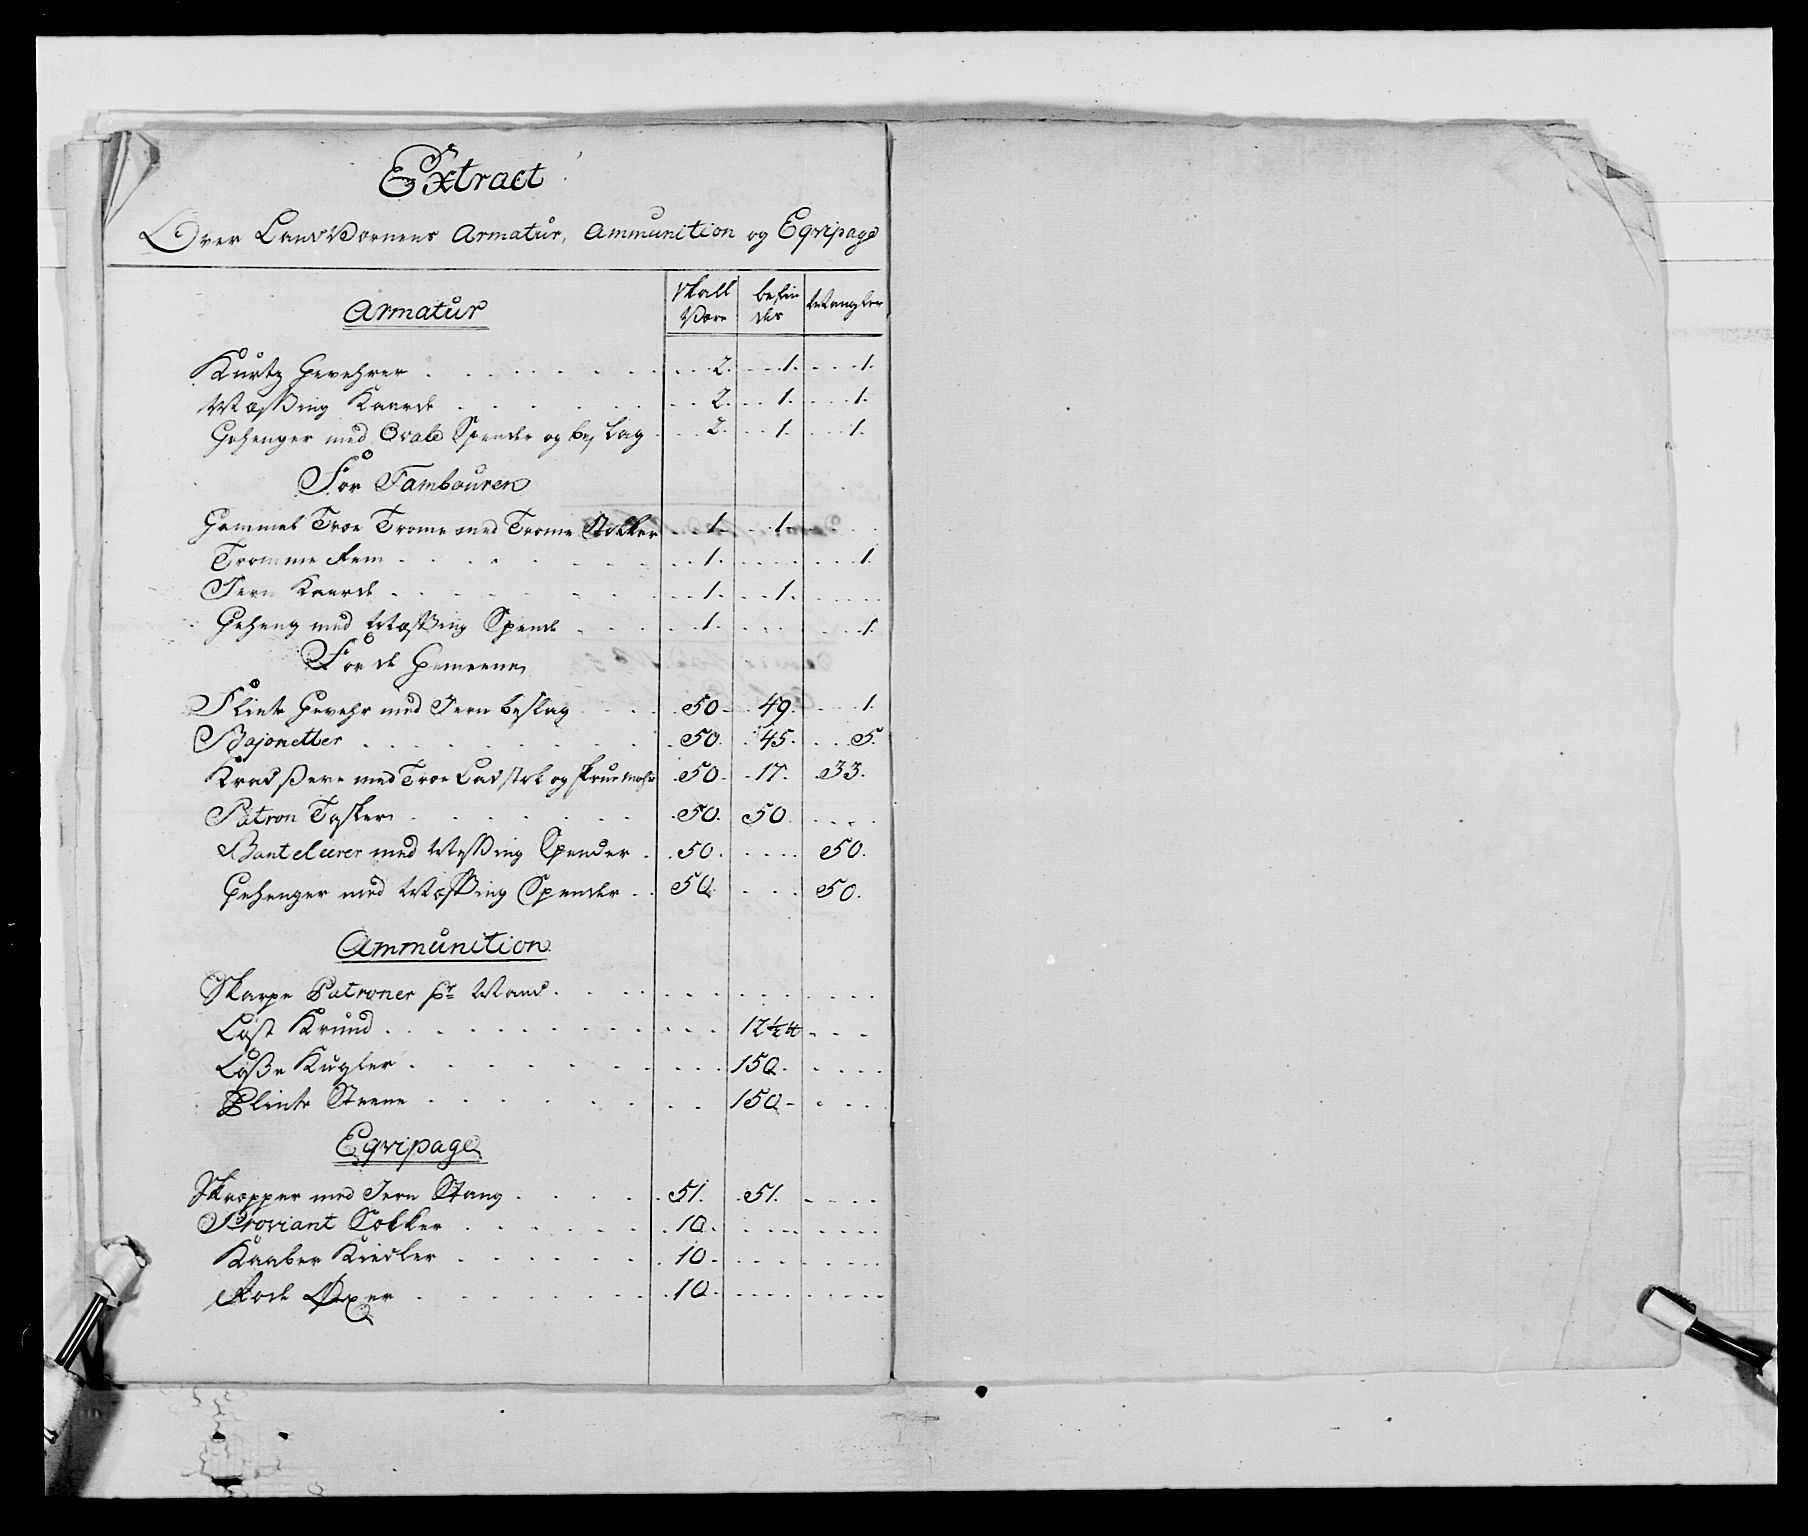 Extract
Over LandVærnens Armatur, Ammunition og Eqvipage
Armatur
skall Være
befindes
Mangler
Kurtz Gevehrer . . . 2. . 1. . 1.
Mæssing Kaarde . . . 2. . 1. . 1.
Gehenger med Ovale Spender og beslag . . 2. . 1. . 1.
For Tambouren
Gammel Træe Trome med Trome Stokker . . 1. . 1. . .
Tromme Rem . . . 1. . . . 1.
Jern Kaarde . . . 1. . 1. . .
Geheng med Mæssing Spende . . . 1. . . . 1.
For de Gemeene
Flinte Gevehr med Jern beslag . . . 50. . 49. . 1.
Bajonetter . . . 50. . 45. . 5.
Kradsere med Træe Ladstok og 50. . 17. 33.
Patron Tasker . . . 50. 50. . .
Bantelerer med Messing Spender . . 50. . . 50.
Gehenger med Mæssing Spender . . 50 . . 50.
Ammunition
Skarpe Patroner pr Mand . . .
Løst Krund . . . 12½ ℔ . . .
Løsse Kugler . . . 150. . . .
Flinte Steene . . . 150 - . . .
Eqvipage
Skræpper med Jern Stang . . . 51. . 51. . . .
Proviant Sækker . . . 10. . . .
Kaaber Kiedler . . . 10. . . .
Rode Øxer . . . 10. . . .